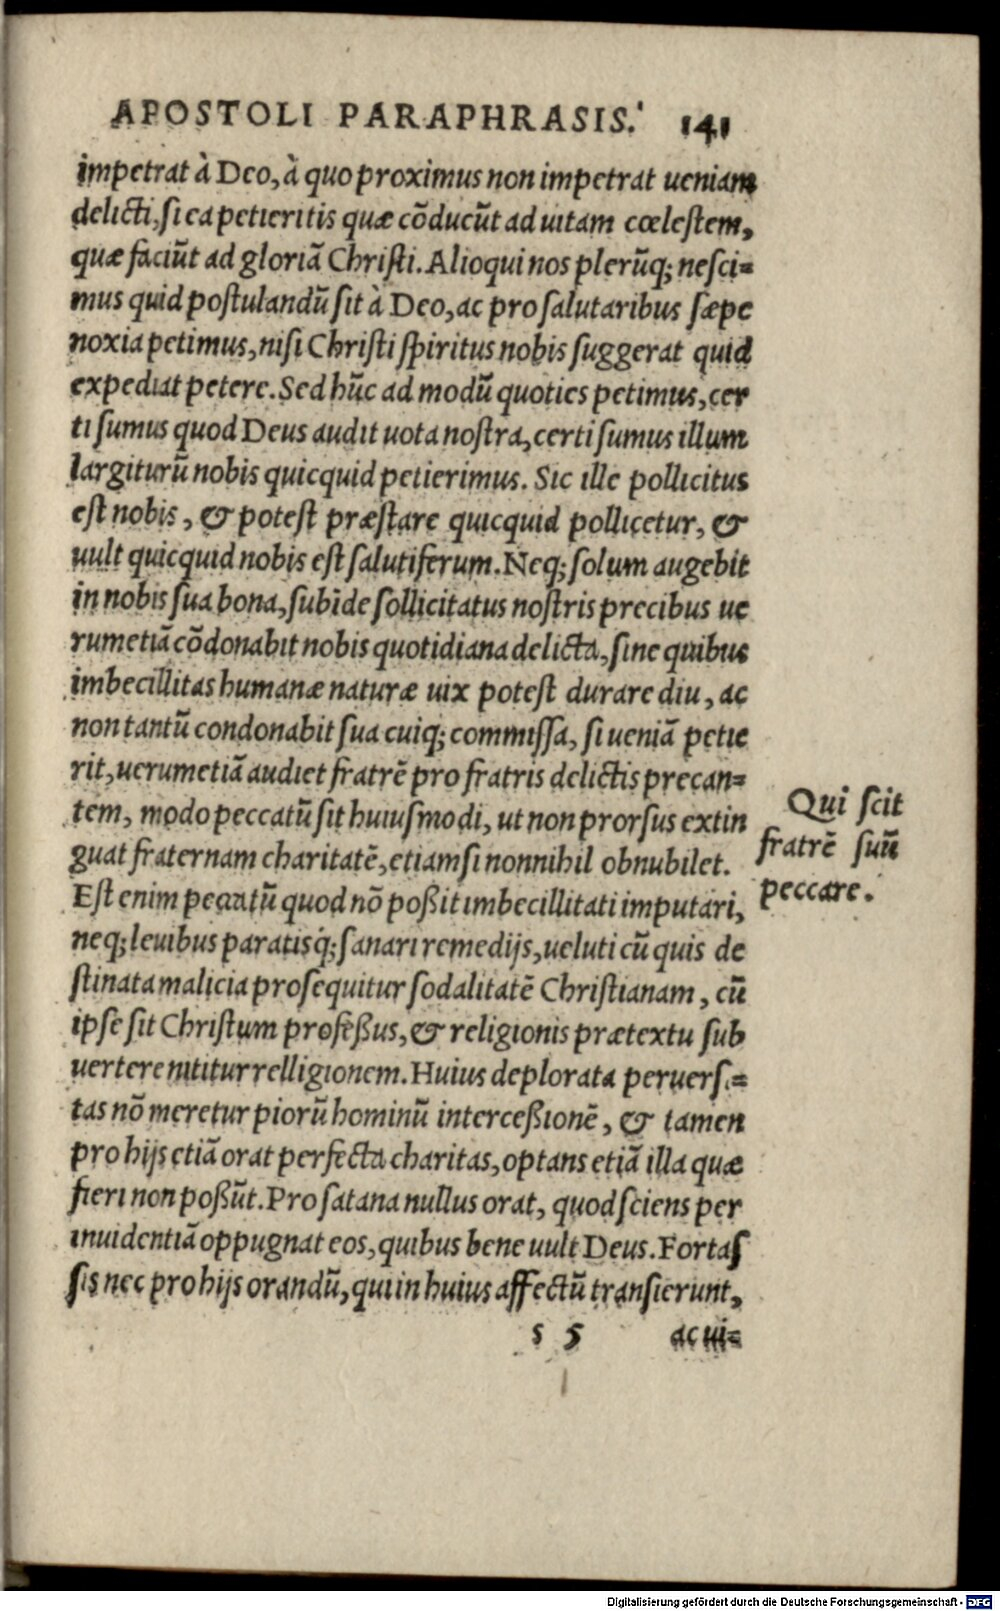 APOSTOLI PARAPHRASIS. 141
impetrat à Deo, à quo proximus non impetrat ueniam
delicti, si ea petieritis quæ cōducūt ad uitam cœlestem,
quæ faciūt ad gloriā Christi. Alioqui nos plerūq; nesci=
mus quid postulandū sit à Deo, ac pro salutaribus sæpe
noxia petimus, nisi Christi spiritus nobis suggerat quid
expediat petere. Sed hūc ad modū quoties petimus, cer
ti sumus quod Deus audit uota nostra, certi sumus illum
largiturū nobis quicquid petierimus. Sic ille pollicitus
est nobis, & potest præstare quicquid pollicetur, &
uult quicquid nobis est salutiferum. Neq; solum augebit
in nobis sua bona, subīde sollicitatus nostris precibus ue
rumetiā cōdonabit nobis quotidiana delicta, sine quibus
imbecillitas humanæ naturæ uix potest durare diu, ac
non tantū condonabit sua cuiq; commissa, si ueniā petie
rit, uerumetiā audiet fratrē pro fratris delictis precan=
tem, modo peccatū sit huiusmodi, ut non prorsus extin
guat fraternam charitatē, etiamsi nonnihil obnubilet.
Est enim peccatū quod nō poßit imbecillitati imputari,
neq; leuibus paratisq́; sanari remedijs, ueluti cū quis de
stinata malicia prosequitur sodalitatē Christianam, cū
ipse sit Christum profeßus, & religionis prætextu sub
uertere nititur relligionem. Huius deplorata peruersi=
tas nō meretur piorū hominū interceßionē, & tamen
pro hijs etiā orat perfecta charitas, optans etiā illa quæ
fieri non poßūt. Pro satana nullus orat, quod sciens per
inuidentiā oppugnat eos, quibus bene uult Deus. Fortas
sis nec pro hijs orandū, qui in huius affectū transierunt,
s 5 ac ui=
Qui scit
fratrē suū
peccare.
Digitalisierung gefördert durch die Deutsche Forschungsgemeinschaft - DFG